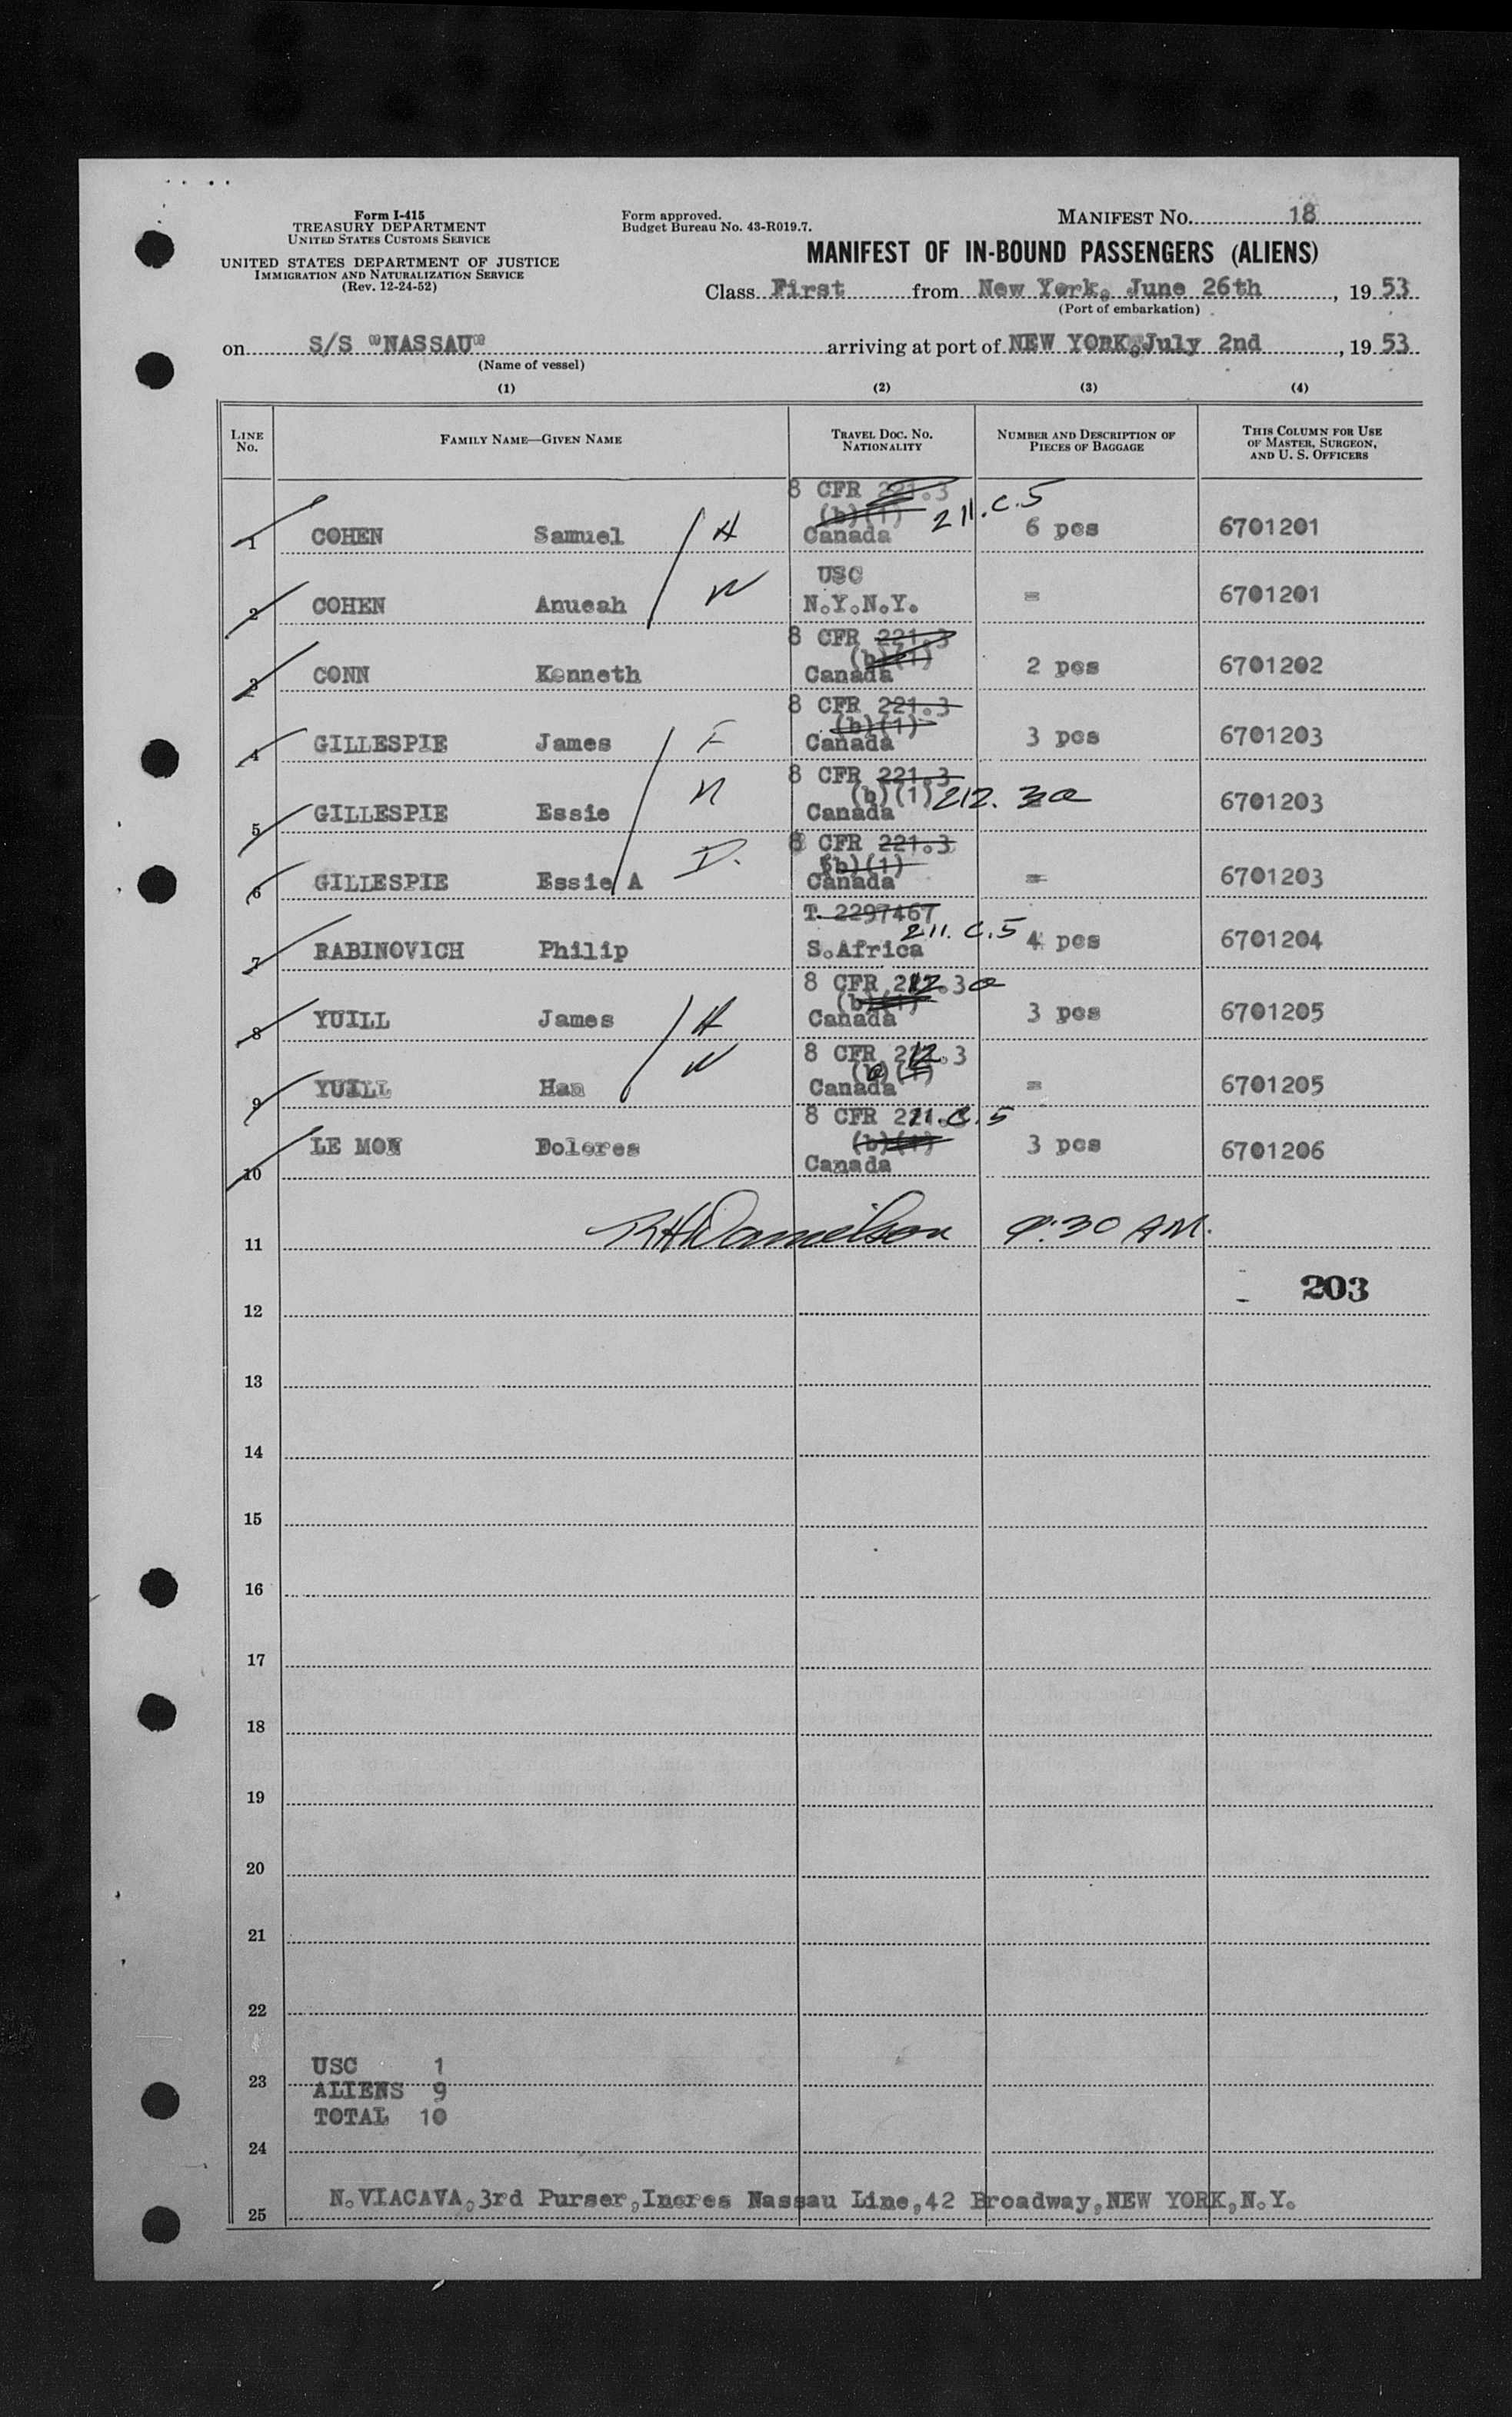 Form I-415
TREASURY DEPARTMENT
UNITED STATES CUSTOMS SERVICE
UNITED STATES DEPARTMENT OF JUSTICE
IMMIGRATION AND NATURALIZATION SERVICE
(Rev. 12-24-52)
Form approved.
Budget Bureau No. 43-R019.7.
MANIFEST NO. 18
MANIFEST OF IN-BOUND PASSENGERS (ALIENS)
Class First from New York, June 26th, 1953
(Port of embarkation)
on S/S "NASSAU" arriving at port of NEW YORK, July 2nd, 1953
(Name of vessel)
(1) (2) (3) (4)
LINE NO. FAMILY NAME—GIVEN NAME TRAVEL DOC. NO. NATIONALITY NUMBER AND DESCRIPTION OF PIECES OF BAGGAGE THIS COLUMN FOR USE OF MASTER, SURGEON, AND U. S. OFFICERS
8 CFR 221.3
(b)(1) 211.C.5
1 COHEN Samuel H Canada 6 pcs 6701201
USC
2 COHEN Anueah W N.Y.N.Y. = 6701201
8 CFR 221.3
(b)(1)
3 CONN Kenneth Canada 2 pcs 6701202
8 CFR 221.3
(b)(1)
4 GILLESPIE James F Canada 3 pcs 6701203
8 CFR 221.3
(b)(1) 212. 3a
5 GILLESPIE Essie Canada 6701203
8 CFR 221.3
(b)(1)
6 GILLESPIE Essie A D. Canada = 6701203
T. 2297467
211. C.5
7 RABINOVICH Philip S.Africa 4 pcs 6701204
8 CFR 212.3 a
(b)(1)
8 YUILL James H Canada 3 pcs 6701205
8 CFR 212.3
(a)(1)
9 YUILL Han W Canada = 6701205
8 CFR 211.C.5
(b)(1)
10 LE MON Dolores Canada 3 pcs 6701206
11 RH Danielson 9:30 AM.
203
12
13
14
15
16
17
18
19
20
21
22
USC 1
23 ALIENS 9
TOTAL 10
24
25 N.VIACAVA,3rd Purser,Incres Nassau Line,42 Broadway,NEW YORK,N.Y.